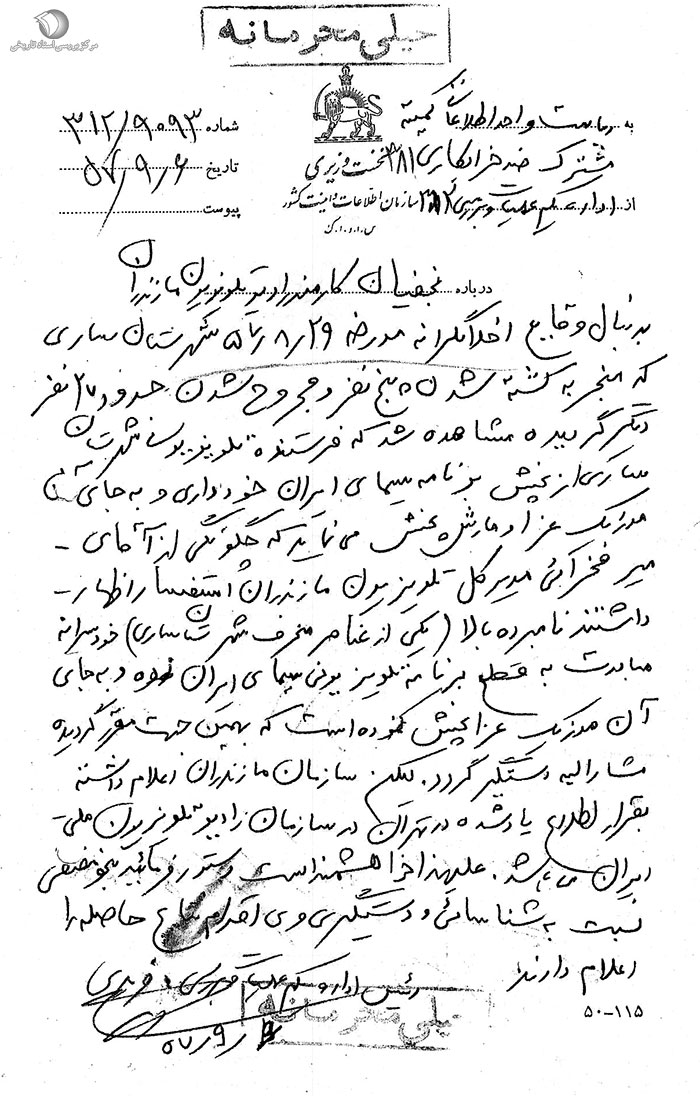 مرکز بررسی اسناد تاریخی
خیلی محرمانه
به ریاست واحد اطلاعاتی کمیته
مشترک ضد خرابکاری ۳۸۱
از اداره یکم عملیات و بررسی ۳۱۲
نخست وزیری
سازمان اطلاعات و امنیت کشور
س.ا.و.ا.ک
شماره ۳۱۲/۹۰۹۳
تاریخ ۵۷/۹/۶
پیوست
درباره نجفیان کارمند رادیو تلویزیون مازندران
بدنبال وقایع اخلالگرانه مورخه ۵۷/۸/۲۹ شهرستان ساری
که منجر به کشته شدن پنج نفر و مجروح شدن حدود ۲۷ نفر
دیگر گردیده مشاهده شد که فرستنده تلویزیونی شهرستان
ساری از پخش برنامه سیمای ایران خودداری و به جای آن
موزیک عزا و مارش پخش می نماید که چگونگی از آقای -
میرفخرائی مدیر کل تلویزیون مازندران استفسار اظهار -
داشتند نامبرده بالا (یکی از عناصر منحرف شهرستان ساری) خودسرانه
مبادرت به قطع برنامه تلویزیونی سیمای ایران نموده و به جای
آن موزیک عزا پخش نموده است که بهمین جهت مقرر گردیده
مشارالیه دستگیر گردد. لیکن سازمان مازندران اعلام داشته
بقرار اطلاع یادشده در تهران در سازمان رادیو تلویزیون ملی
ایران می باشد. علیهذا خواهشمند است دستور فرمائید بنحو مقتضی
نسبت به شناسائی و دستگیری وی اقدام نتایج حاصله را
اعلام دارند
رئیس اداره یکم عملیات و بررسی
خیلی محرمانه
۵۷/۹/
۵۰-۱۱۵